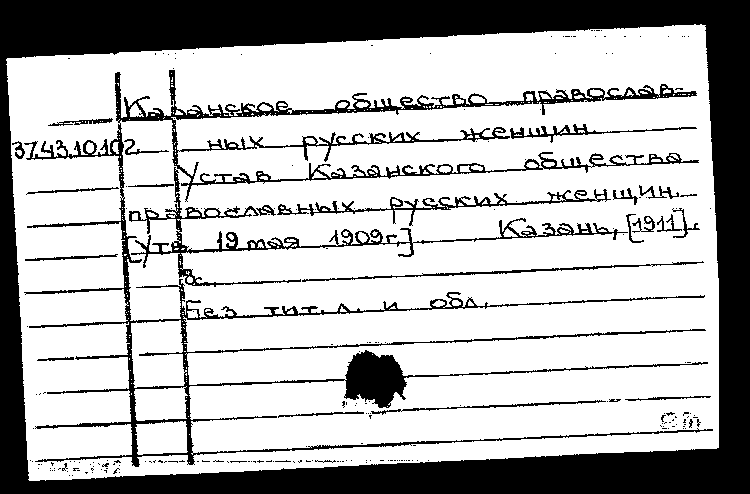 Казанское общество православ-
37.43.10.102. ных русских женщин.
Устав Казанского общества
православных русских женщин.
[Утв. 19 мая 1909 г.]. Казань, [1911].
8с.
Без тит. л. и обл.